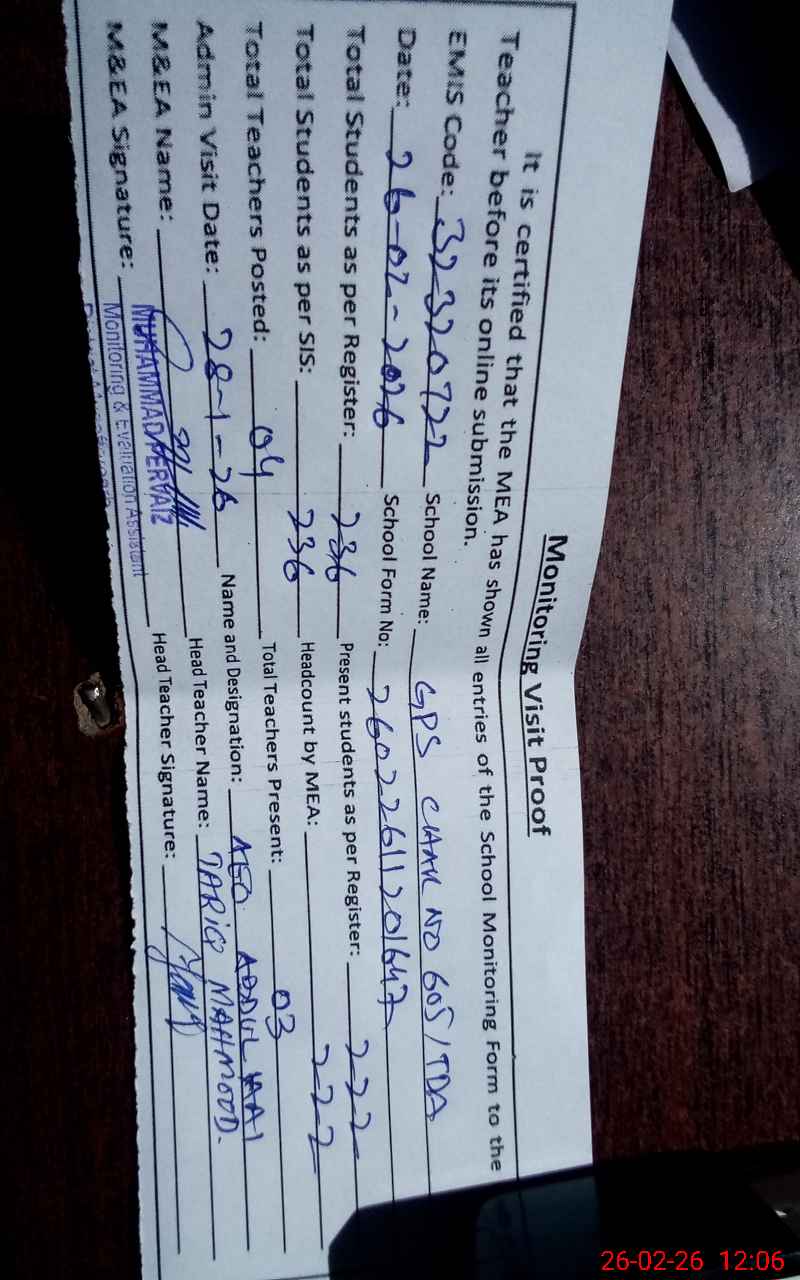 Monitoring Visit Proof
It is certified that the MEA has shown all entries of the School Monitoring Form to the
Teacher before its online submission.
EMIS Code: 32320722 School Name: GPS CHAK NO 605/TDA
Date: 26-02-2026 School Form No: 26022611201647
Total Students as per Register: 236 Present students as per Register: 222
Total Students as per SIS: 236 Headcount by MEA: 222
Total Teachers Posted: 04 Total Teachers Present: 03
Admin Visit Date: 28-1-26 Name and Designation: AEO ABDUL HAAI
M&EA Name: Head Teacher Name: TARIQ MAHMOOD.
M&EA Signature: Head Teacher Signature:
MUHAMMAD PERVAIZ
Monitoring & Evaluation Assistant
26-02-26 12:06